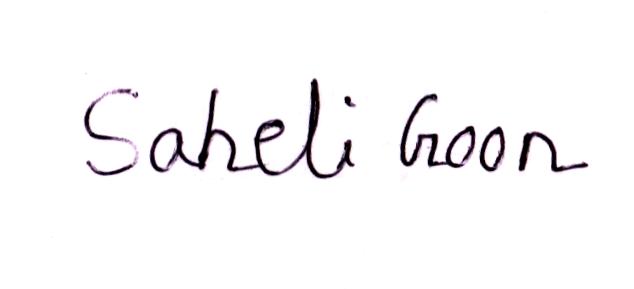 Saheli Goon